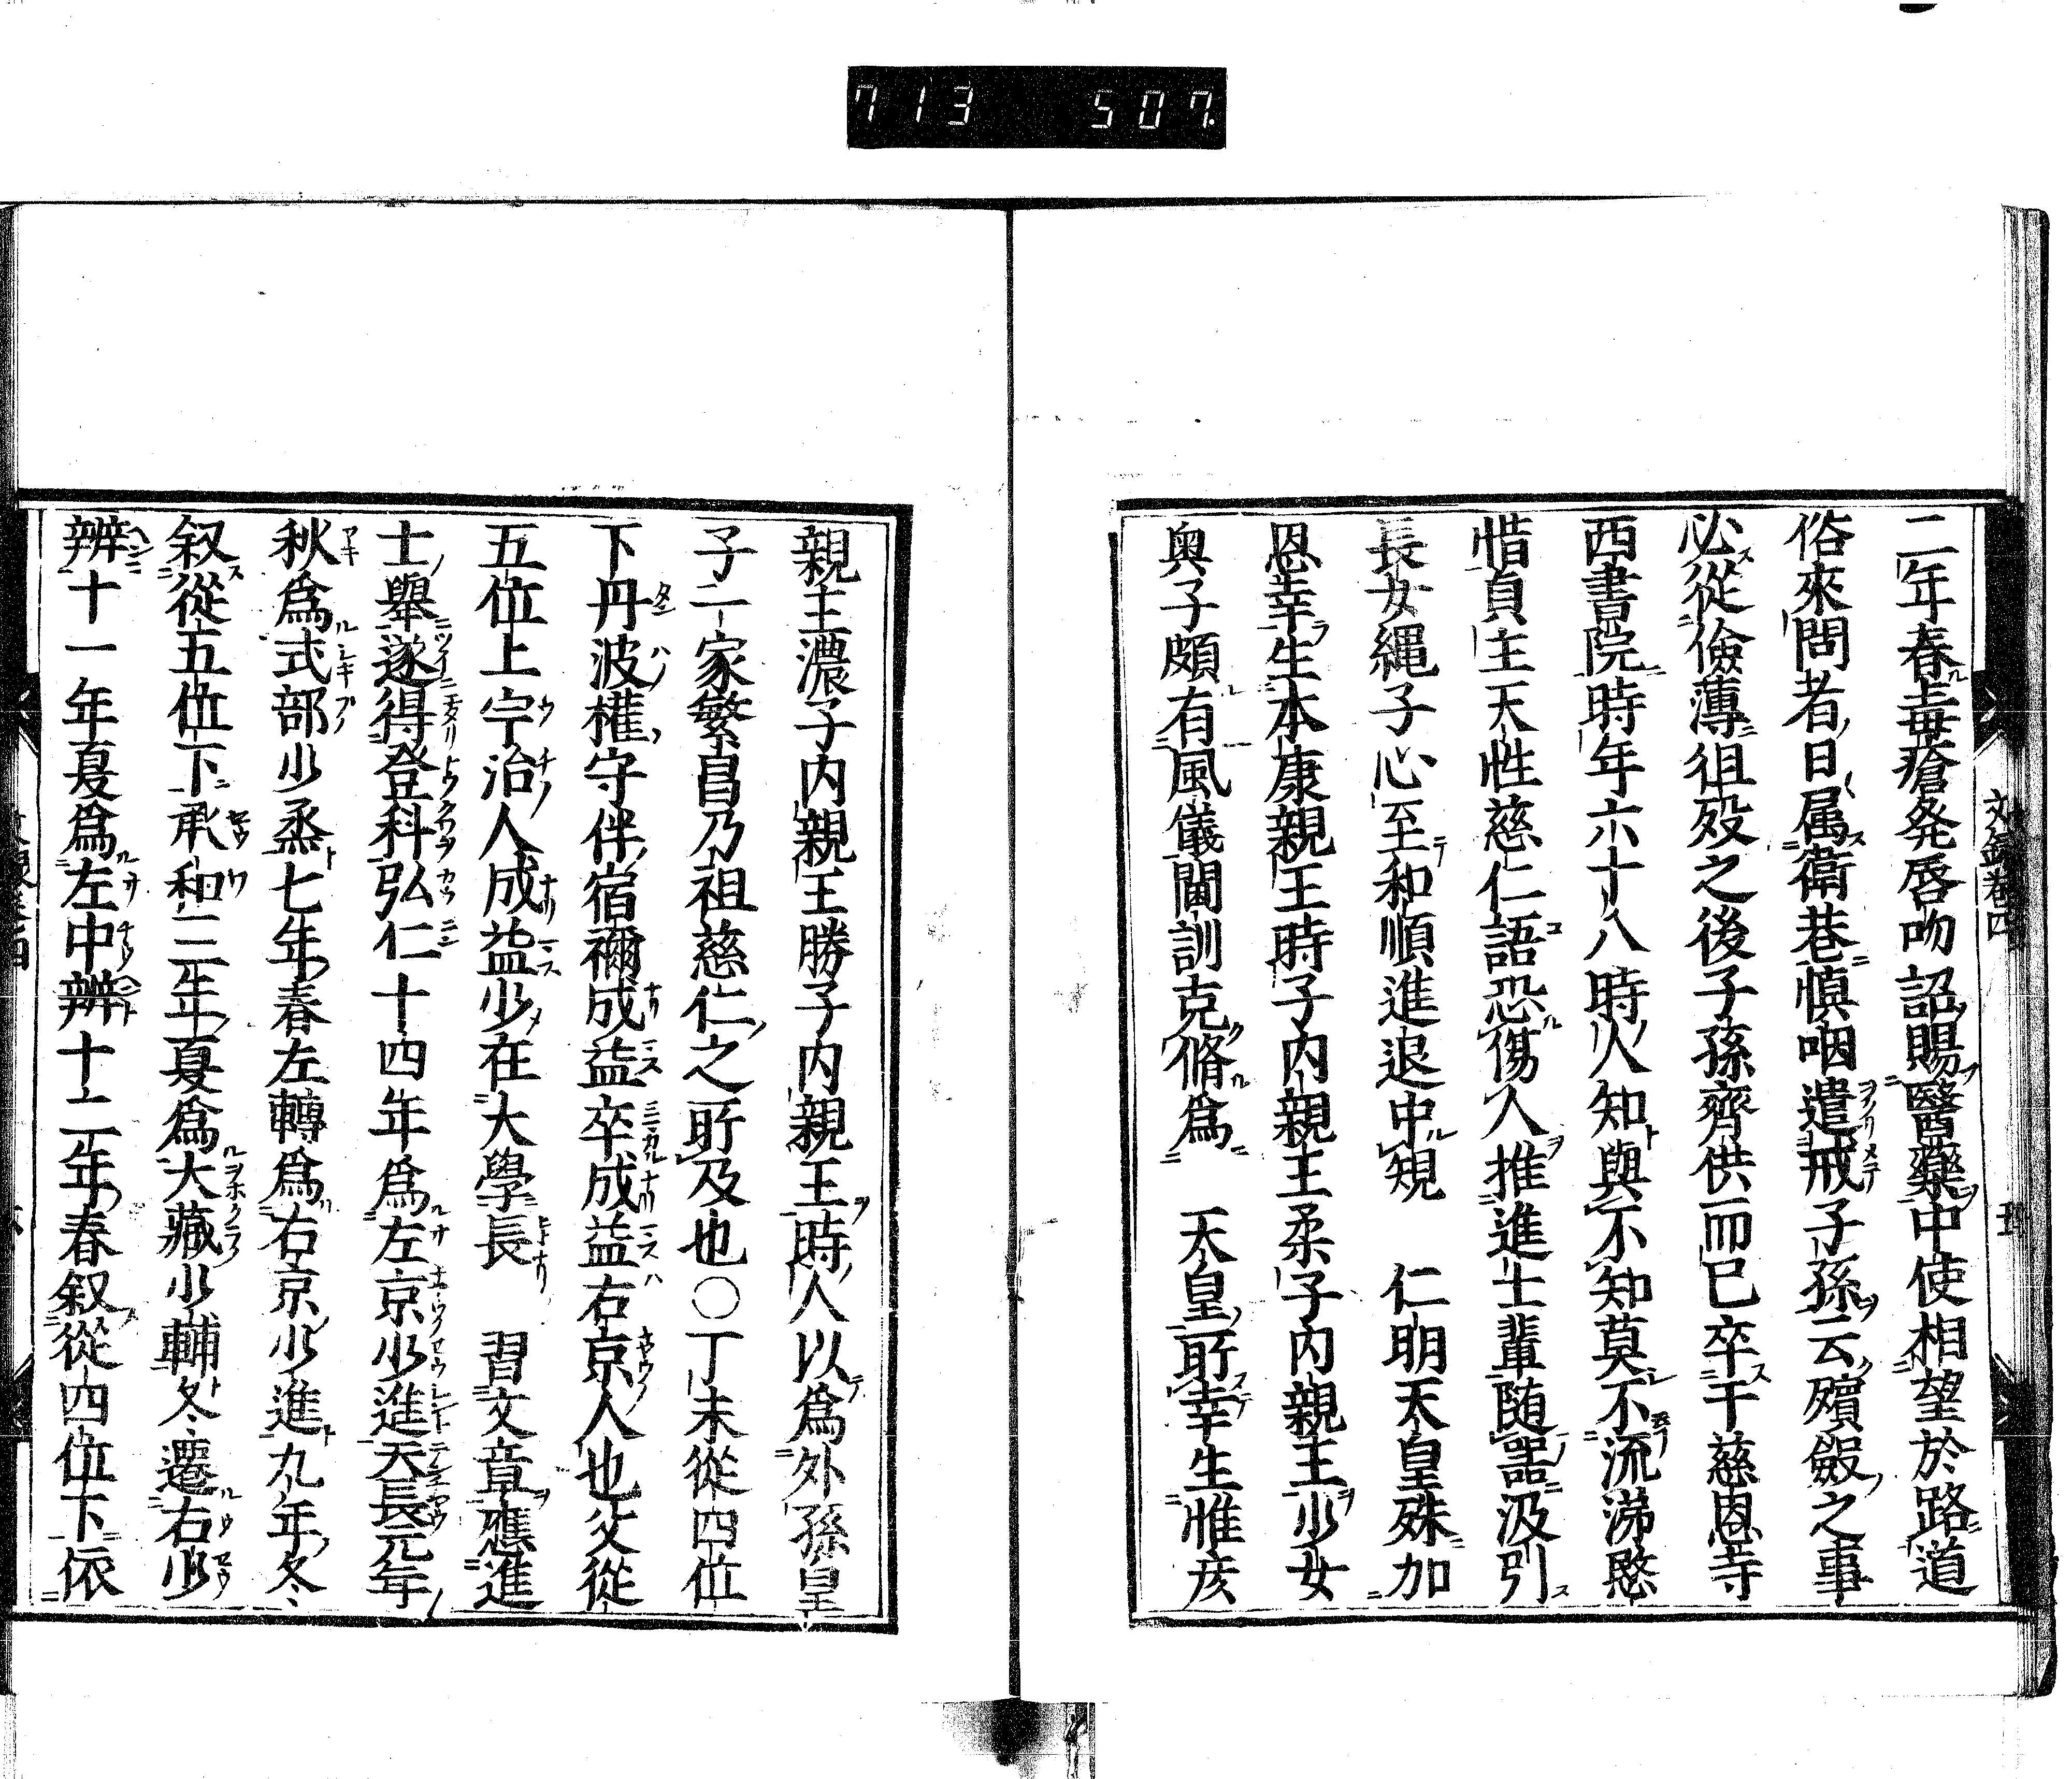 713 507.
二年春毒瘡発唇吻詔賜醫藥中使相望於路道
俗來問者日属衛巷慎咽遣戒子孫云殯斂之事
必從儉薄徂歿之後子孫齊供而已卒于慈恩寺
西書院時年六十八時人知與不知莫不流涕愍
惜貞主天性慈仁語恐傷人推進士輩随器汲引
長女縄子心至和順進退中規　仁明天皇殊加
恩幸生本康親王時子内親王柔子内親王少女
奥子頗有風儀閫訓克脩爲　天皇所幸生惟彦
親王濃子内親王勝子内親王時人以爲外孫皇
子一家繁昌乃祖慈仁之所及也〇丁未從四位
下丹波權守伴宿禰成益卒成益右京人也父從
五位上宇治人成益少在大學長　習文章應進
士舉遂得登科弘仁十四年爲左京少進天長元年
秋爲式部少丞七年春左轉爲右京少進九年冬
叙從五位下承和二年夏爲大藏少輔冬遷右少
辨十一年夏爲左中辨十二年春叙從四位下依
文録卷四